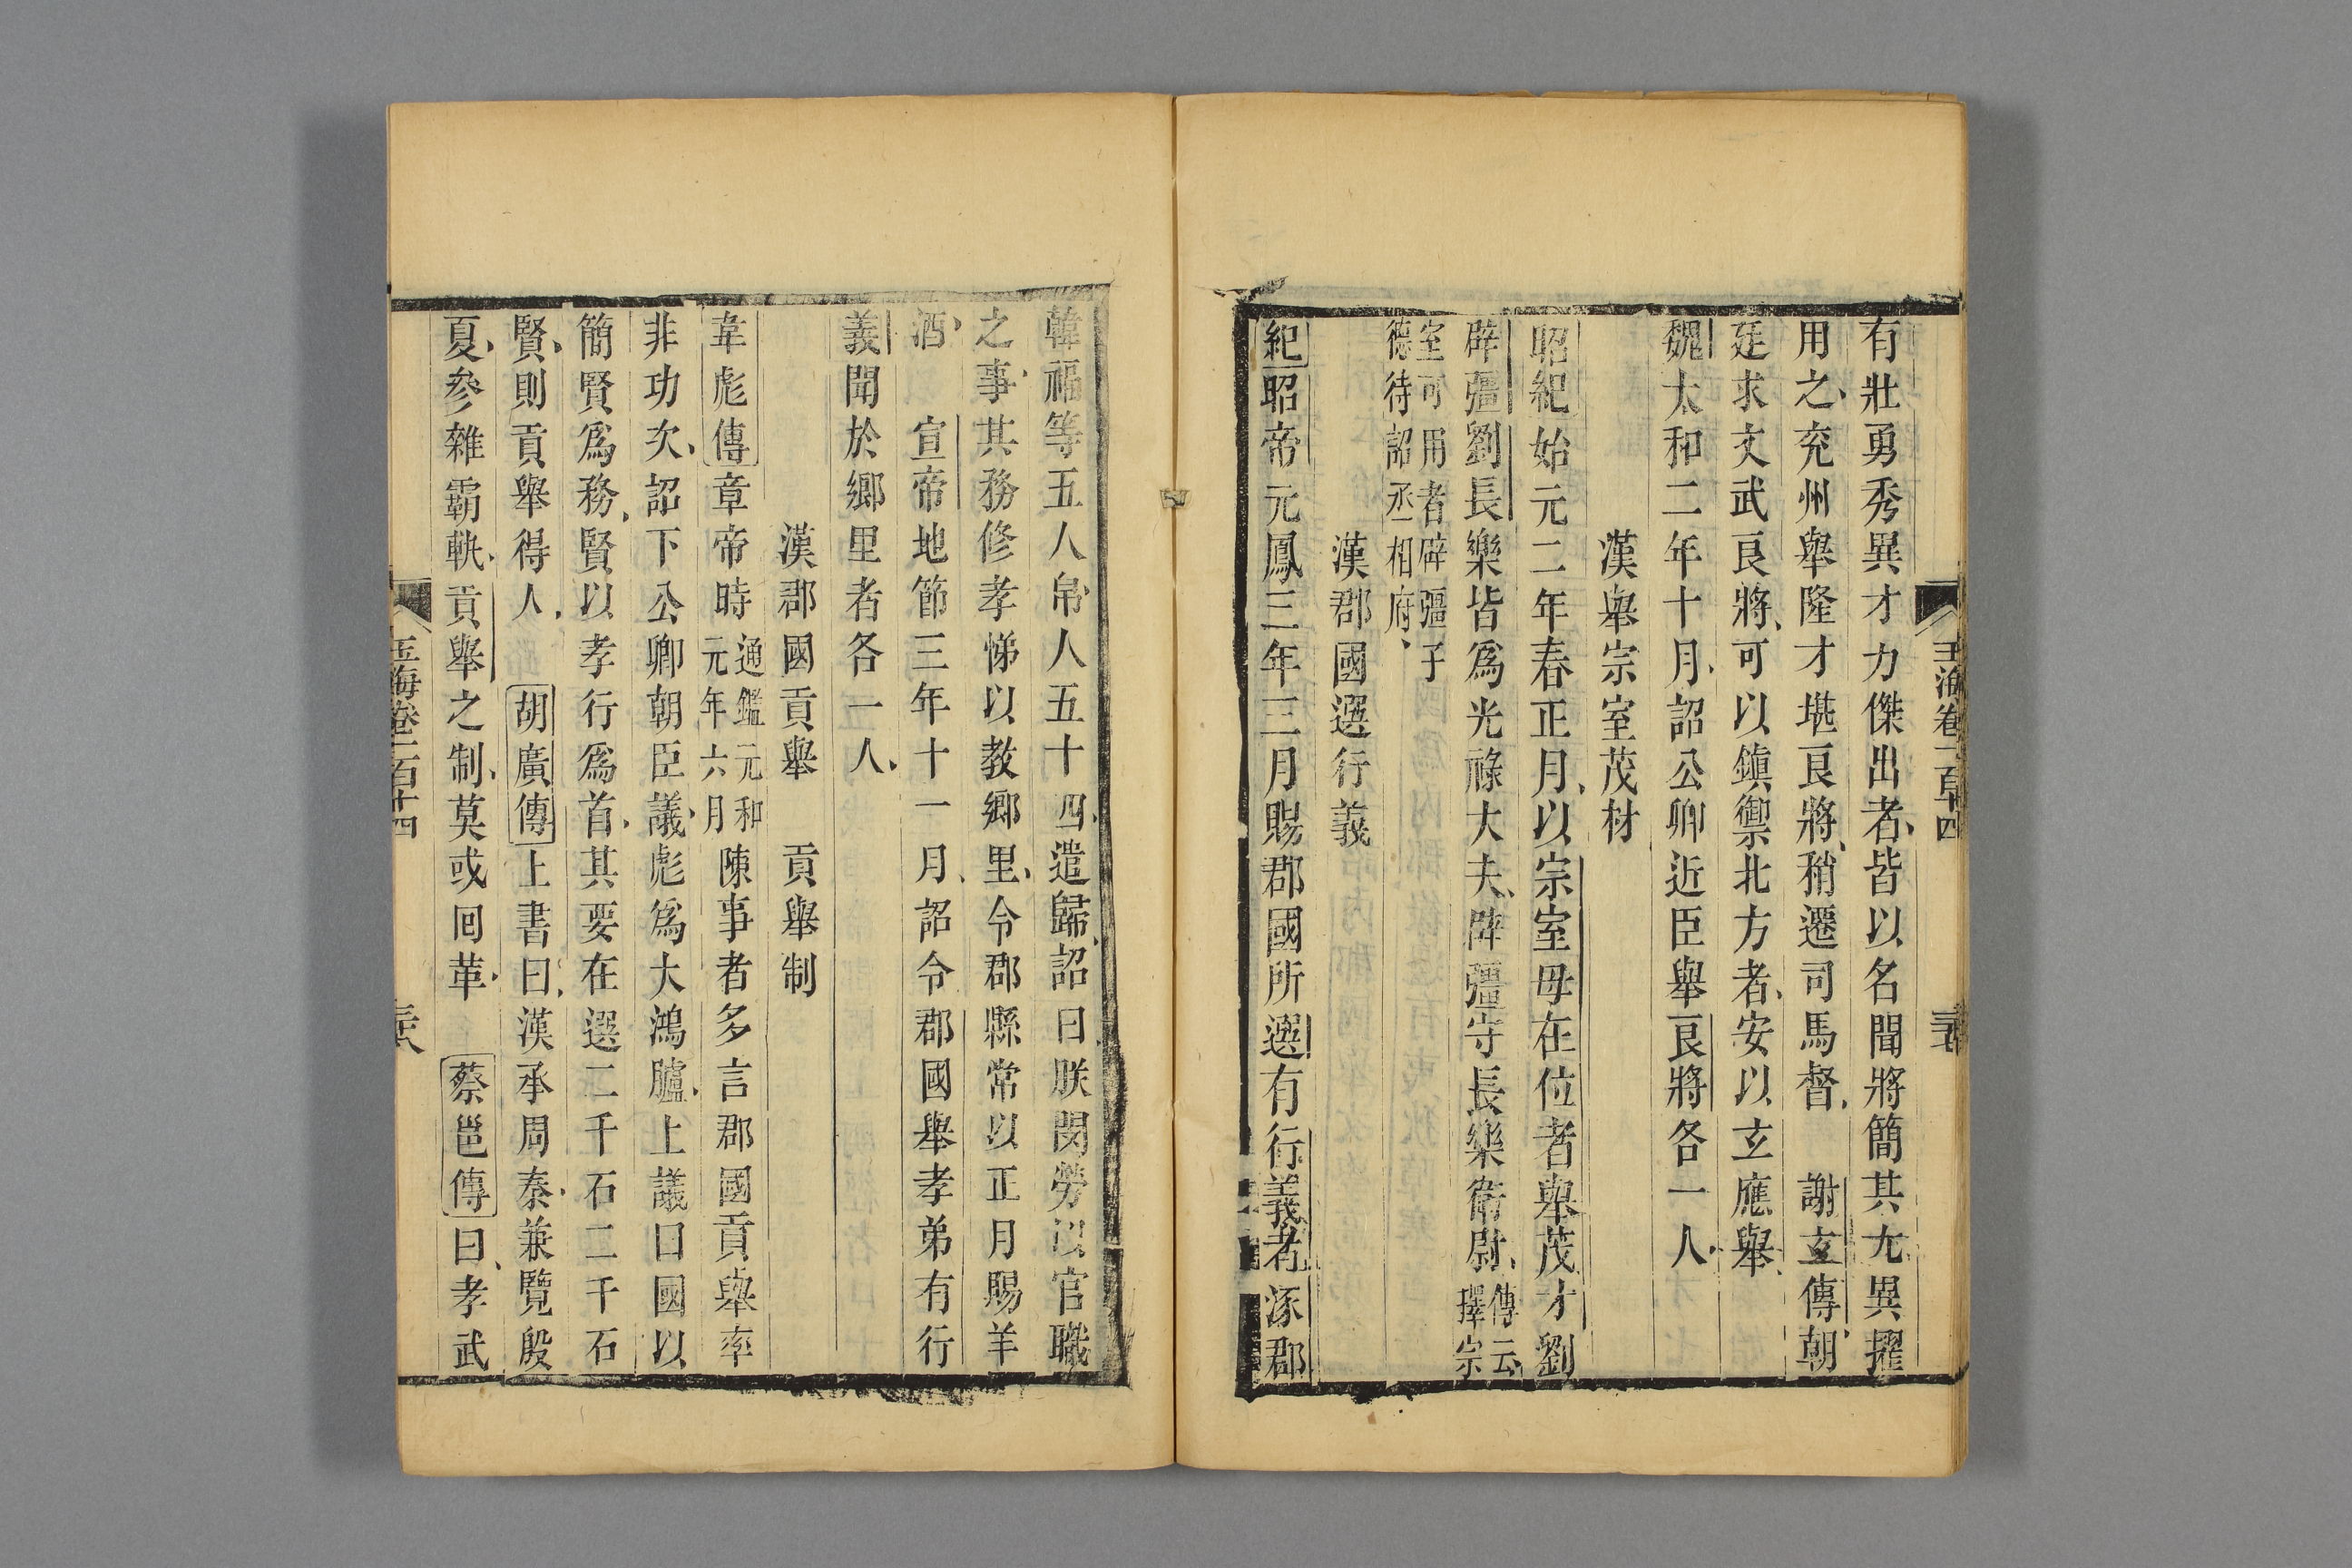 玉海卷一百十四
有壯勇秀異才力傑出者皆以名聞將簡其尤異擢
用之兖州舉隆才堪良將稍遷司馬督　謝玄傳朝
廷求文武良將可以鎮禦北方者安以玄應舉
魏太和二年十月詔公卿近臣舉良將各一人
漢舉宗室茂材
昭紀始元二年春正月以宗室毋在位者舉茂才劉
辟彊劉長樂皆爲光祿大夫辟彊守長樂衛尉傳云擇宗
室可用者辟彊子德待詔丞相府
漢郡國選行義
紀昭帝元鳳三年三月賜郡國所選有行義者涿郡
韓福等五人帛人五十四遣歸詔曰朕閔勞以官職
之事其務修孝悌以教鄉里令郡縣常以正月賜羊
酒　宣帝地節三年十一月詔令郡國舉孝弟有行
義聞於鄉里者各一人
漢郡國貢舉　貢舉制
韋彪傳章帝時通鑑元和元年六月陳事者多言郡國貢舉率
非功次詔下公卿朝臣議彪爲大鴻臚上議曰國以
簡賢爲務賢以孝行爲首其要在選二千石二千石
賢則貢舉得人　胡廣傳上書曰漢承周秦兼覽殷
夏參雜霸軌貢舉之制莫或回革　蔡邕傳曰孝武
玉海卷一百十四　三十八